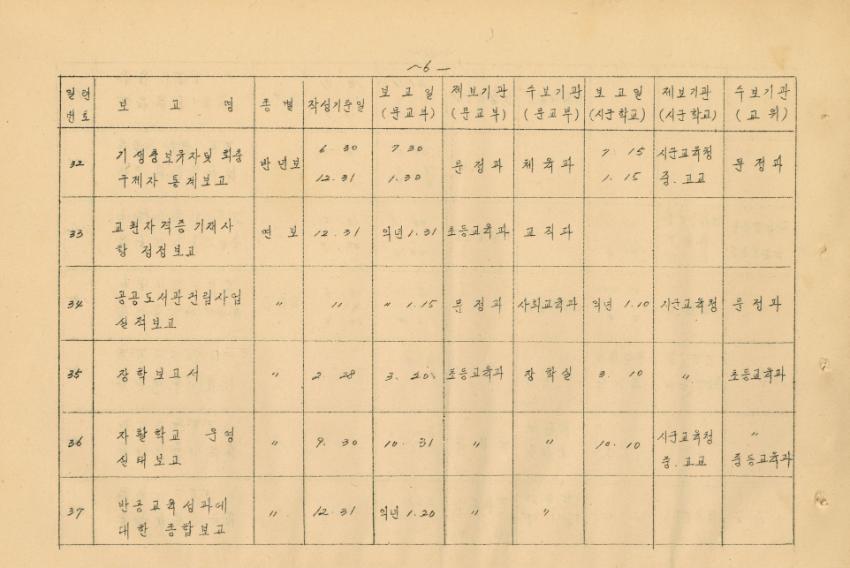 ~6 —
일련 번호 보고명 종별 작성기준일 보고일 (문교부) 제보기관 (문교부) 수보기관 (문교부) 보고일 (시군학교) 제보기관 (시군학교) 수보기관 (교위)
32 기생충보유자및 회충 구제자 통계보고 반년보 6. 30 12.31 7 30 1. 30 문정과 체육과 7. 15 1. 15 시군교육청 중. 고교 문정과
33 교원자격증기재사 항 정정보고 연보 12. 31 익년1. 31 초등교육과 교직과
34 공공도서관건립사업 실적보고 〃 〃 〃 1. 15 문정과 사회교육과 익년 1. 10 시군교육청 문정과
35 장학보고서 〃 2. 28 3. 20 초등교육과 장학실 3. 10 〃 초등교육과
36 자활학교 운영 실태보고 〃 9. 30 10. 31 〃 〃 10. 10 시군교육청 중. 고교 〃 중등교육과
37 반공교육성과에 대한 종합보고 〃 12. 31 익년 1. 20 〃 〃